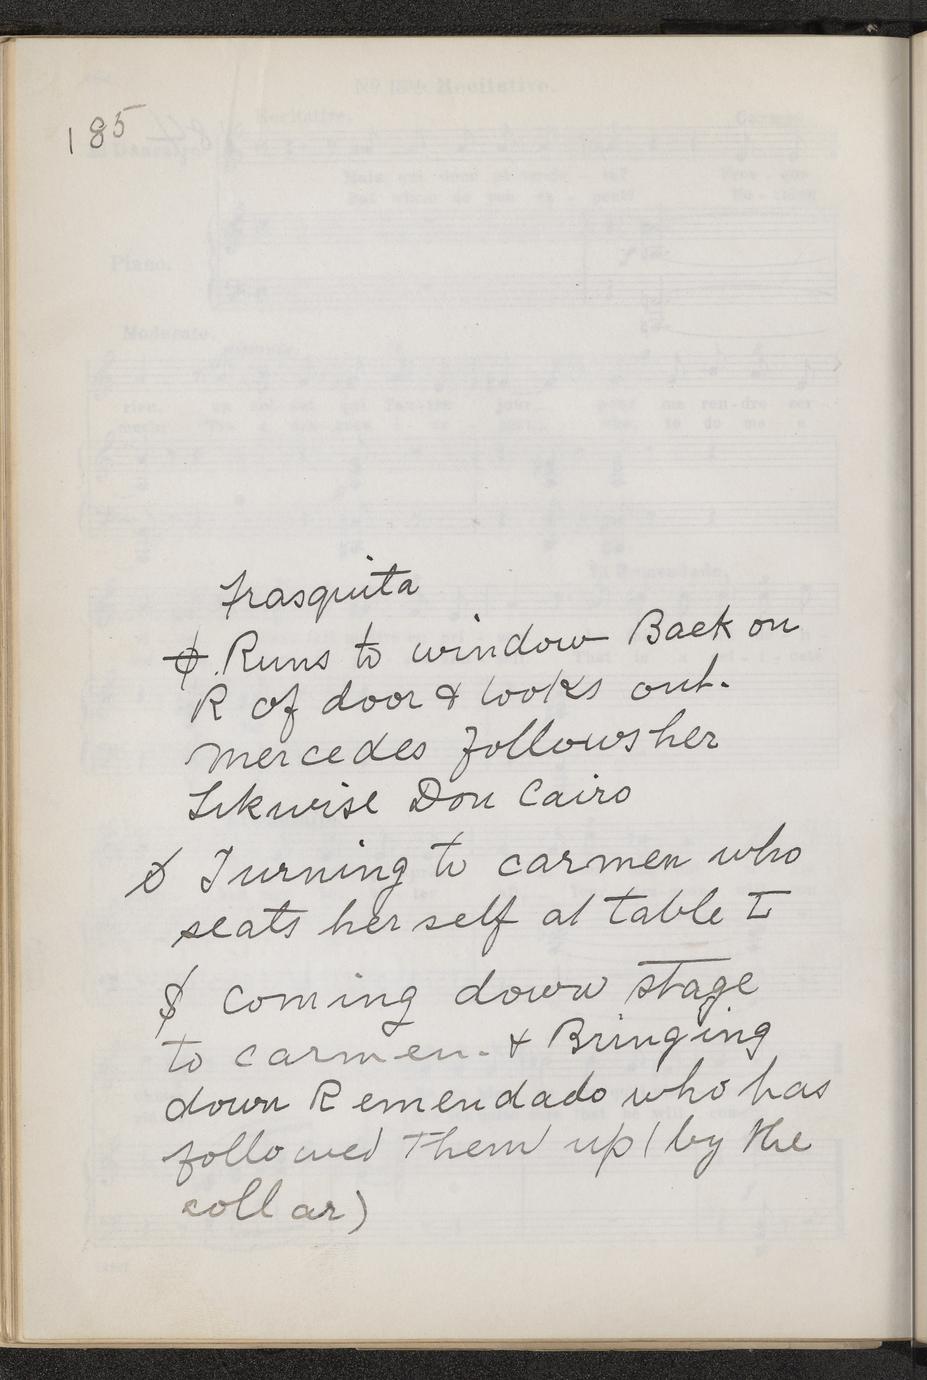 185
Frasquita
Runs to window Back on
R of door & looks out.
Mercedes follows her
Likwise Don Cairo
Turning to carmen who
seats her self at table L
coming down stage
to carmen. & Bringing
down Remendado who has
followed them up (by the
collar)